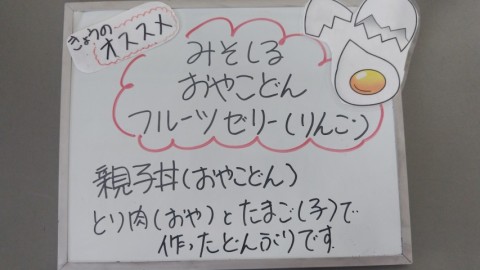 きょうの
オススメ
みそしる
おやこどん
フルーツゼリー(りんご)
親子丼(おやこどん)
とり肉(おや)とたまご(子)で
作ったどんぶりです